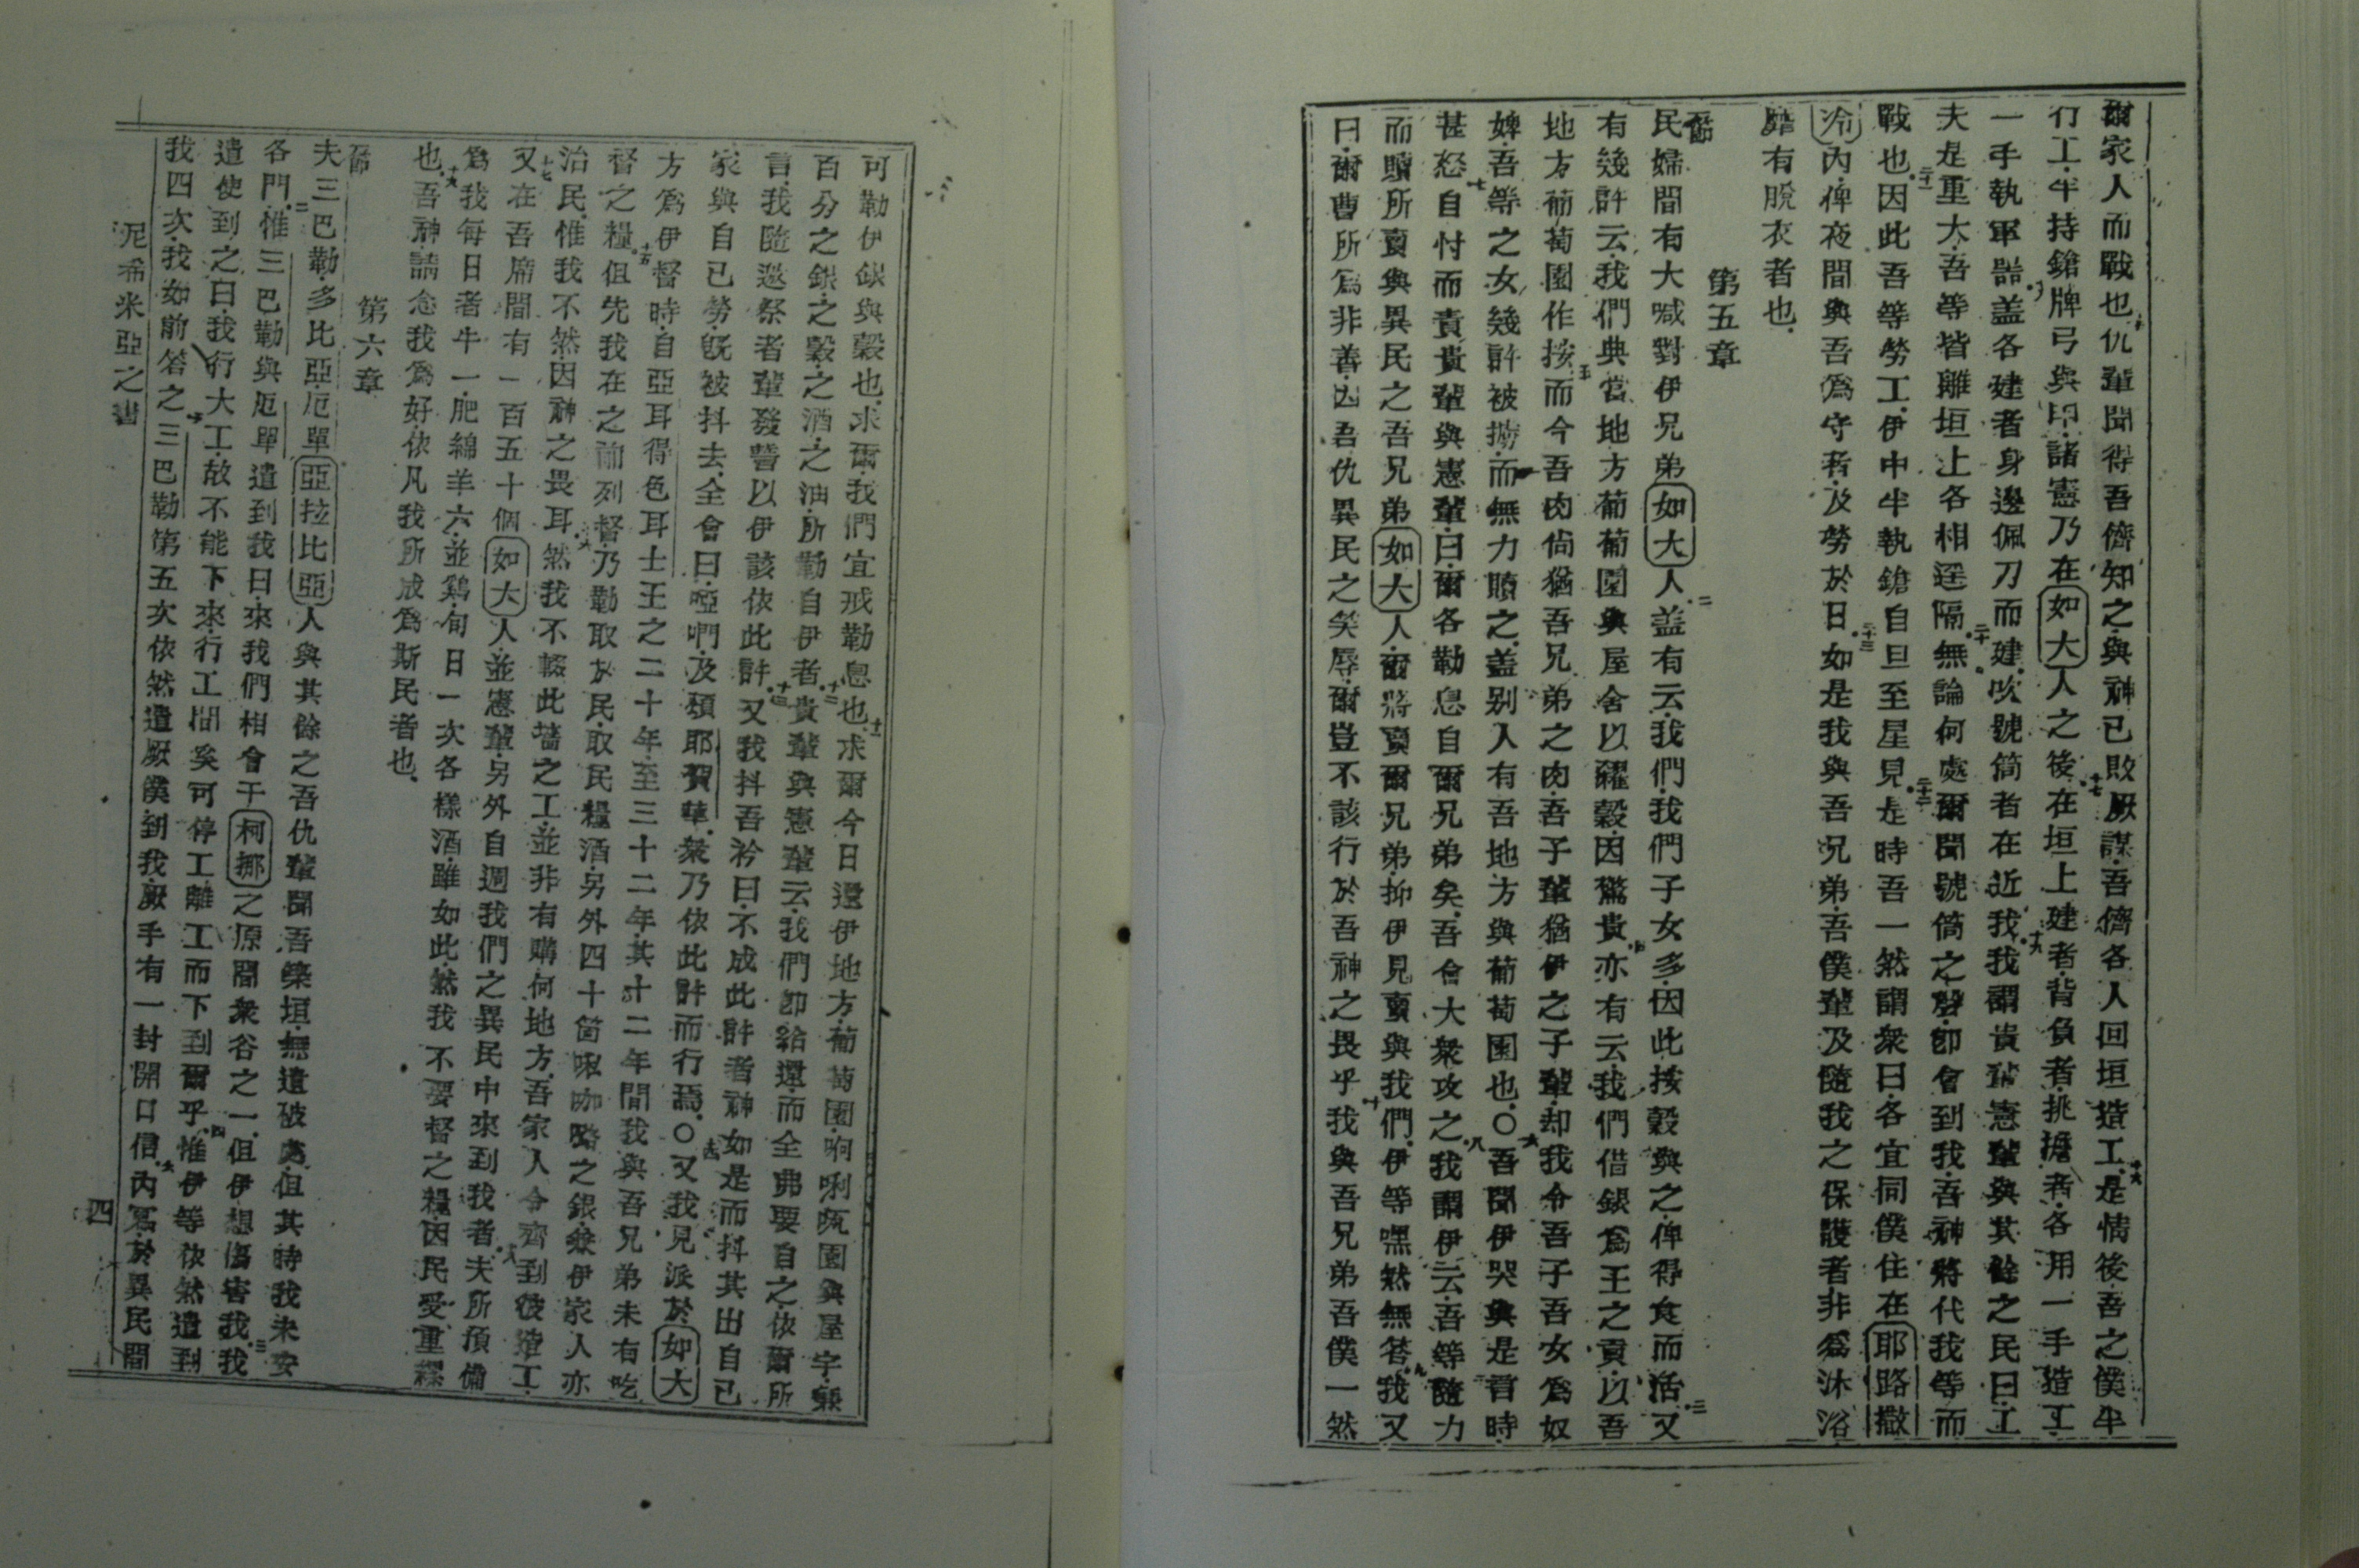 爾家人而戰也十五仇輩聞得吾儕知之與神已敗厥謀吾儕各人回垣造工十六是情後吾之僕半
行工半持鎗牌弓與甲諸憲乃在如大人之後十七在垣上建者背負者挑擔者各用一手造工
一手執軍器十八盖各建者身邊佩刀而建吹號筒者在近我十九我謂貴輩憲輩與其餘之民曰工
夫是重大吾等皆離垣上各相遥隔二十無論何處爾聞號筒之聲卽會到我吾神將代我等而
戰也二十一因此吾等勞工伊中半執鎗自旦至星見二十二是時吾一然謂衆曰各宜同僕住在耶路撒
冷內俾夜間與吾爲守者及勞於日二十三如是我與吾兄弟吾僕輩及隨我之保護者非爲沐浴
有脫衣者也
第五章
一節
民婦間有大喊對伊兄弟如大人二盖有云我們我們子女多因此按穀與之俾得食而活三又
有幾許云我們典當地方葡萄園與屋舍以糴穀因驚貴四亦有云我們借銀爲王之貢以吾
地方葡萄園作按五而今吾肉尙猶吾兄弟之肉吾子輩猶伊之子輩却我令吾子吾女爲奴
婢吾等之女幾許被擄而無力贖之盖别人有吾地方與葡萄園也〇六吾聞伊哭與是言時
甚怒七自忖而責貴輩與憲輩曰爾各勒息自爾兄弟矣吾會大衆攻之八我謂伊云吾等隨力
而贖所賣與異民之吾兄弟如大人爾將賣爾兄弟抑伊見賣與我們伊等嘿然無答九我又
曰爾曹所爲非善因吾仇異民之笑辱爾豈不該行於吾神之畏乎十我與吾兄弟吾僕一然
可勒伊銀與穀也求爾我們宜戒勒息也十一求爾今日還伊地方葡萄園啊唎園與屋宇兼
百分之銀之穀之酒之油所勒自伊者十二貴輩與憲輩云我們卽給還而全弗要自之依爾所
言我隨邀祭者輩發誓以伊該依此許十三又我抖吾衿曰不成此許者神如是而抖其出自己
家與自己勞旣被抖去全會曰啞們及頌耶賀華衆乃依此許而行焉〇十四又我見派於如大
方爲伊督時自亞耳得色耳士王之二十年至三十二年其十二年間我與吾兄弟未有吃
督之糧十五但先我在之前列督乃勒取於民取民糧酒另外四十箇㖿咖略之銀兼伊家人亦
治民惟我不然因神之畏耳十六然我不輟此墻之工並非有購何地方吾家人令齊到彼造工
十七又在吾席間有一百五十個如大人並憲輩另外自週我們之異民中來到我者十八夫所預備
爲我每日者牛一肥綿羊六並鷄旬日一次各樣酒雖如此然我不要督之糧因民受重繇
也十九吾神請念我爲好依凡我所成爲斯民者也
第六章
一節
夫三巴勒多比亞厄單亞拉比亞人與其餘之吾仇輩聞吾築垣無遺破處但其時我未安
各門二惟三巴勒與厄單遣到我曰來我們相會于柯挪之原間衆谷之一但伊想傷害我三我
遣使到之曰我行大工故不能下來行工間奚可停工離工而下到爾乎四惟伊等依然遣到
我四次我如前答之五三巴勒第五次依然遣厥僕到我厥手有一封開口信六內寫於異民間
泥希米亞之書
四